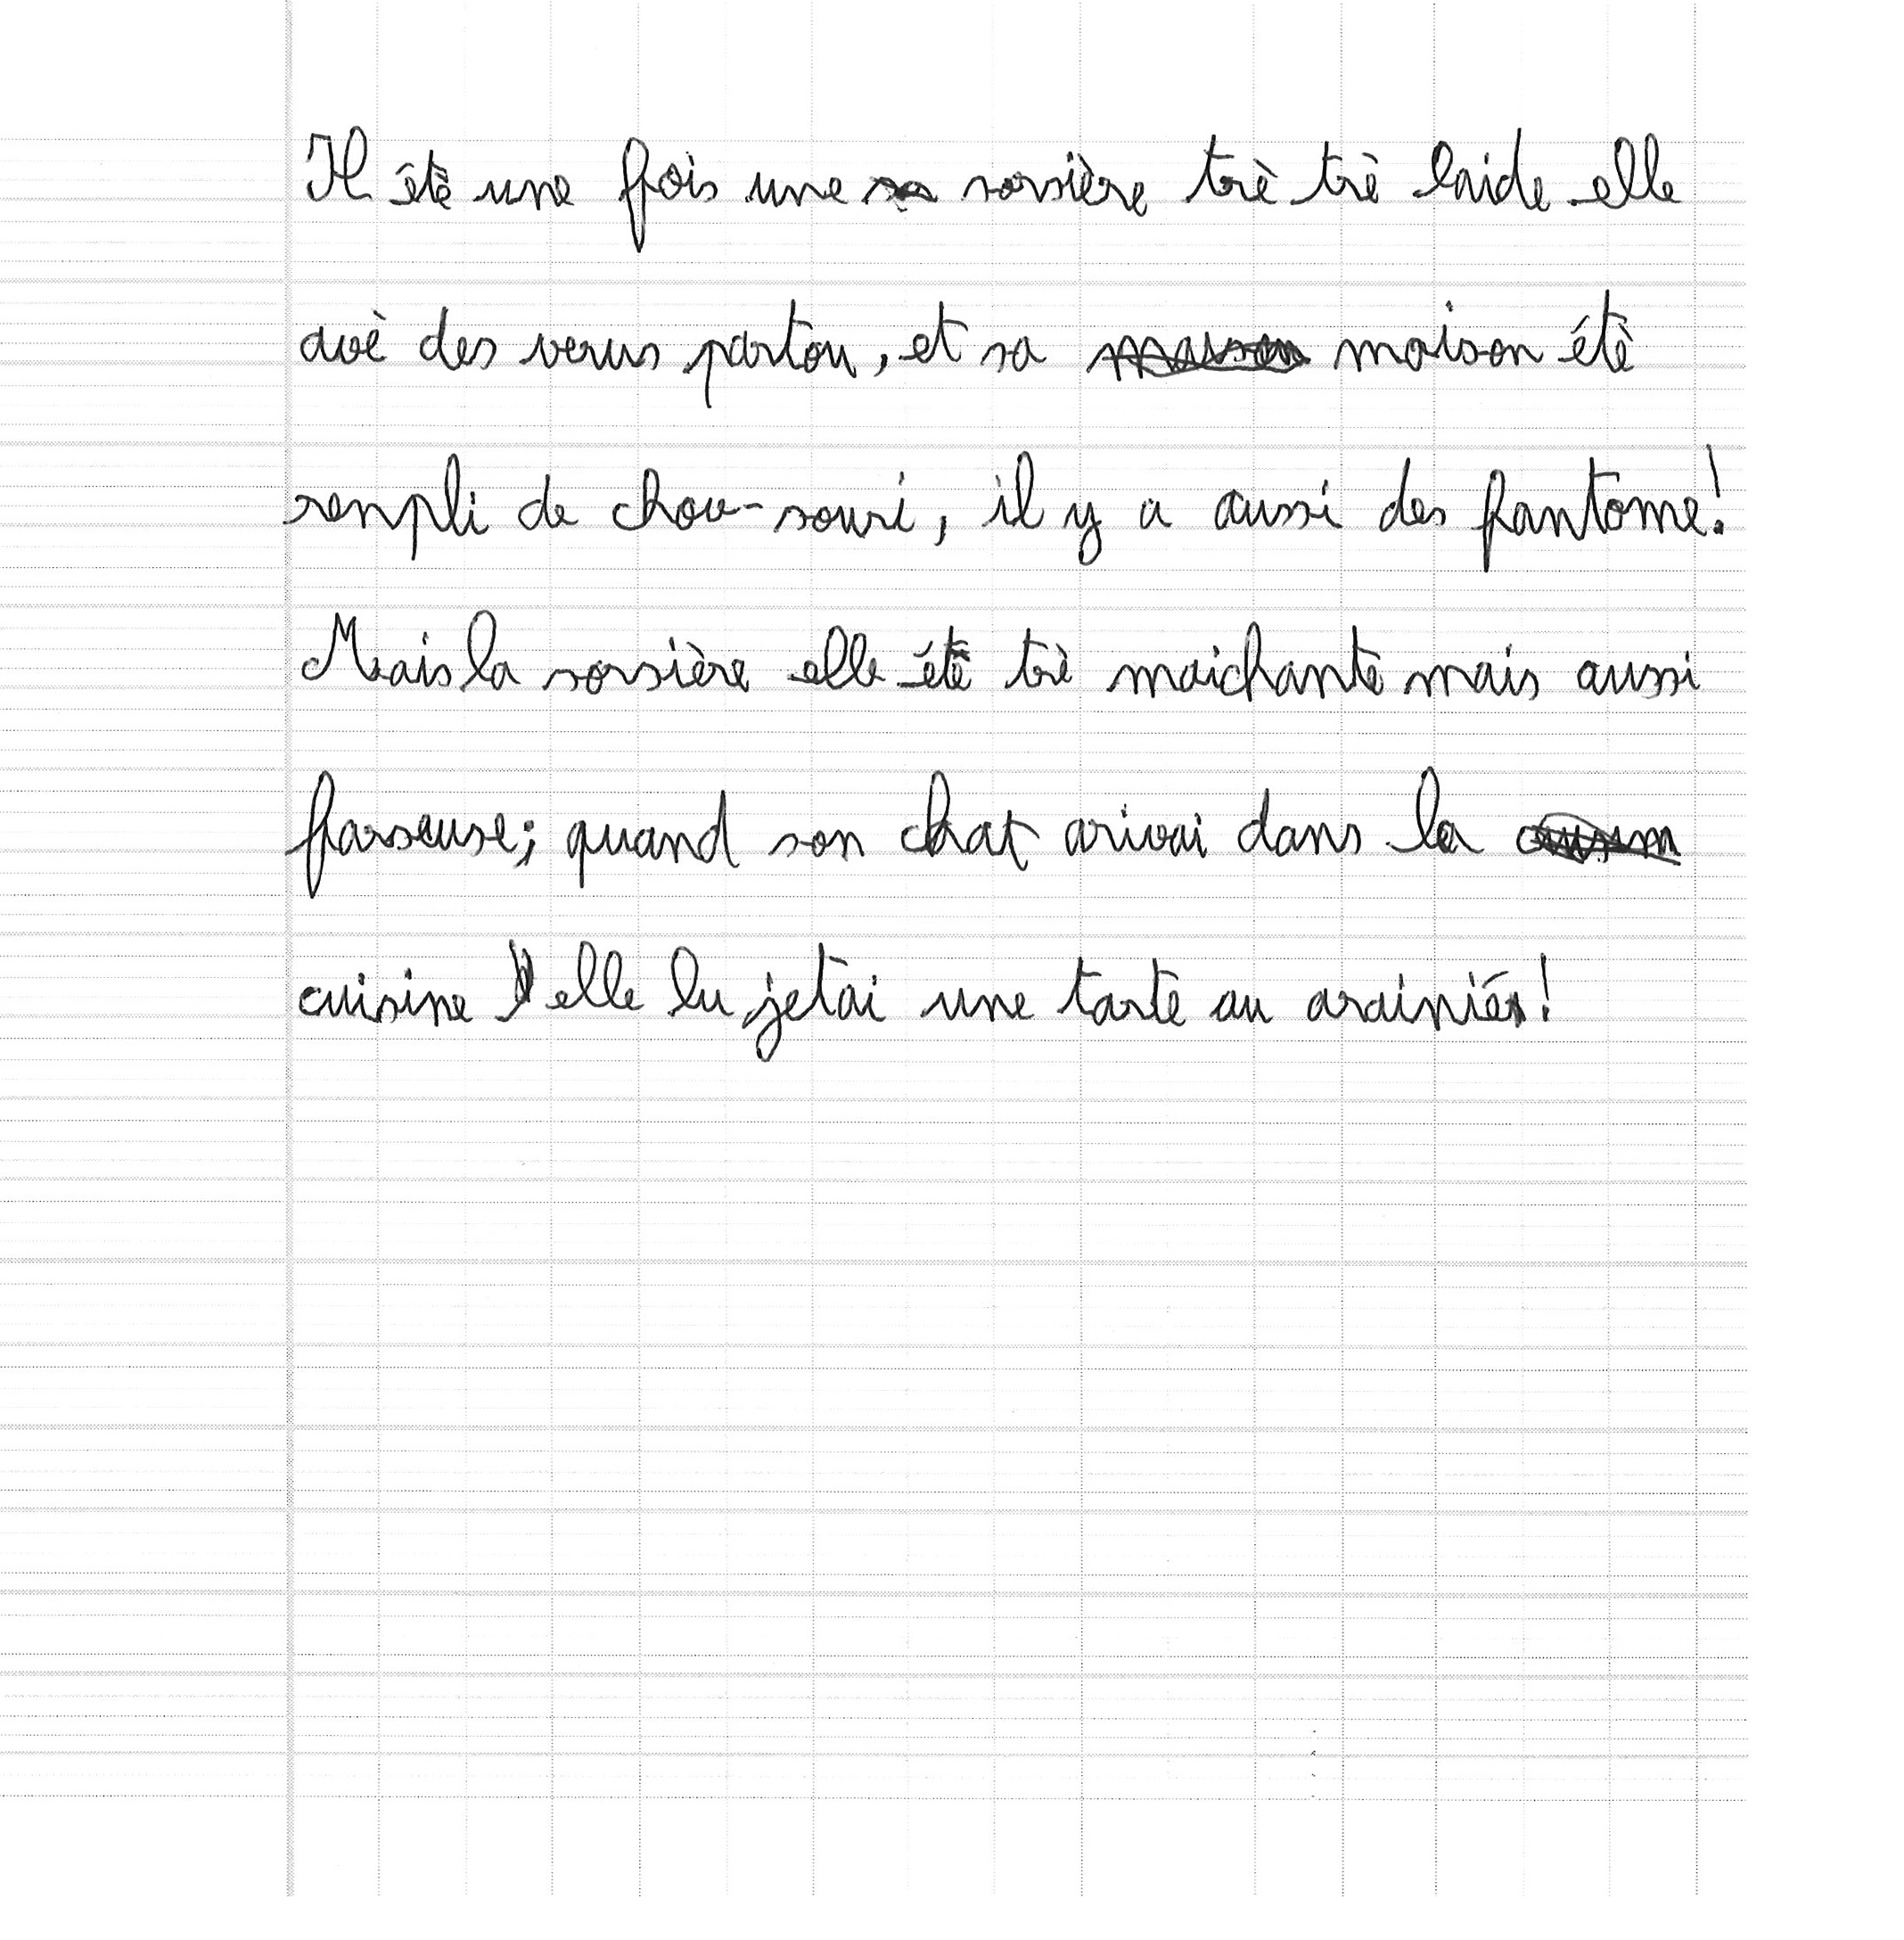 Il étè une fois une sorsière trè trè laide elle
avè des verus partou, et sa maison étè
renpli de chou-souri, il y a aussi des fantome!
Mais la sorsière elle étè trè maichante mais aussi
farseuse; quand son chat arivai dans la
cuisine elle lu jetai une tarte au arainiés!